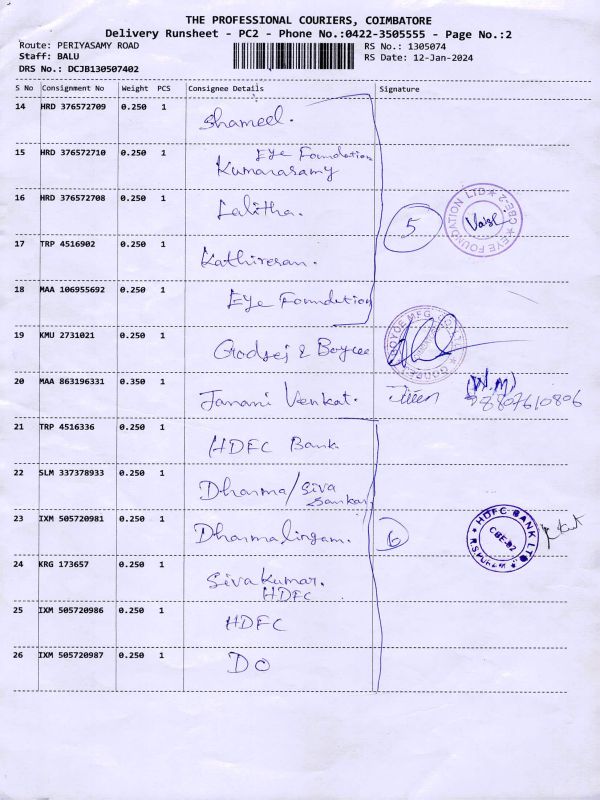 THE PROFESSIONAL COURIERS, COIMBATORE
Delivery Runsheet - PC2 - Phone No.:0422-3505555 - Page No.:2
Route: PERIYASAMY ROAD RS No.: 1305074
Staff: BALU RS Date: 12-Jan-2024
DRS No.: DCJB130507402
S No Consignment No Weight PCS Consignee Details Signature
14 HRD 376572709 0.250 1 Shameel.
Eye Foundation
15 HRD 376572710 0.250 1 Kumarasamy
16 HRD 376572708 0.250 1 Lalitha.
5
EYE FOUNDATION LTD * CBE-2 *
17 TRP 4516902 0.250 1 Kathiresan.
18 MAA 106955692 0.250 1 Eye Foundation
19 KMU 2731021 0.250 1 Godrej & Boyce
20 MAA 863196331 0.350 1 Janani Venkat.
(W.M)
8807610806
21 TRP 4516336 0.250 1 HDFC Bank
22 SLM 337378933 0.250 1 Dharma/Siva
Sankar
23 IXM 505720981 0.250 1 Dharmalingam.
6
* HDFC BANK LTD * RSPURAM
CBE-02
24 KRG 173657 0.250 1 Sivakumar.
HDFC
25 IXM 505720986 0.250 1 HDFC
26 IXM 505720987 0.250 1 DO